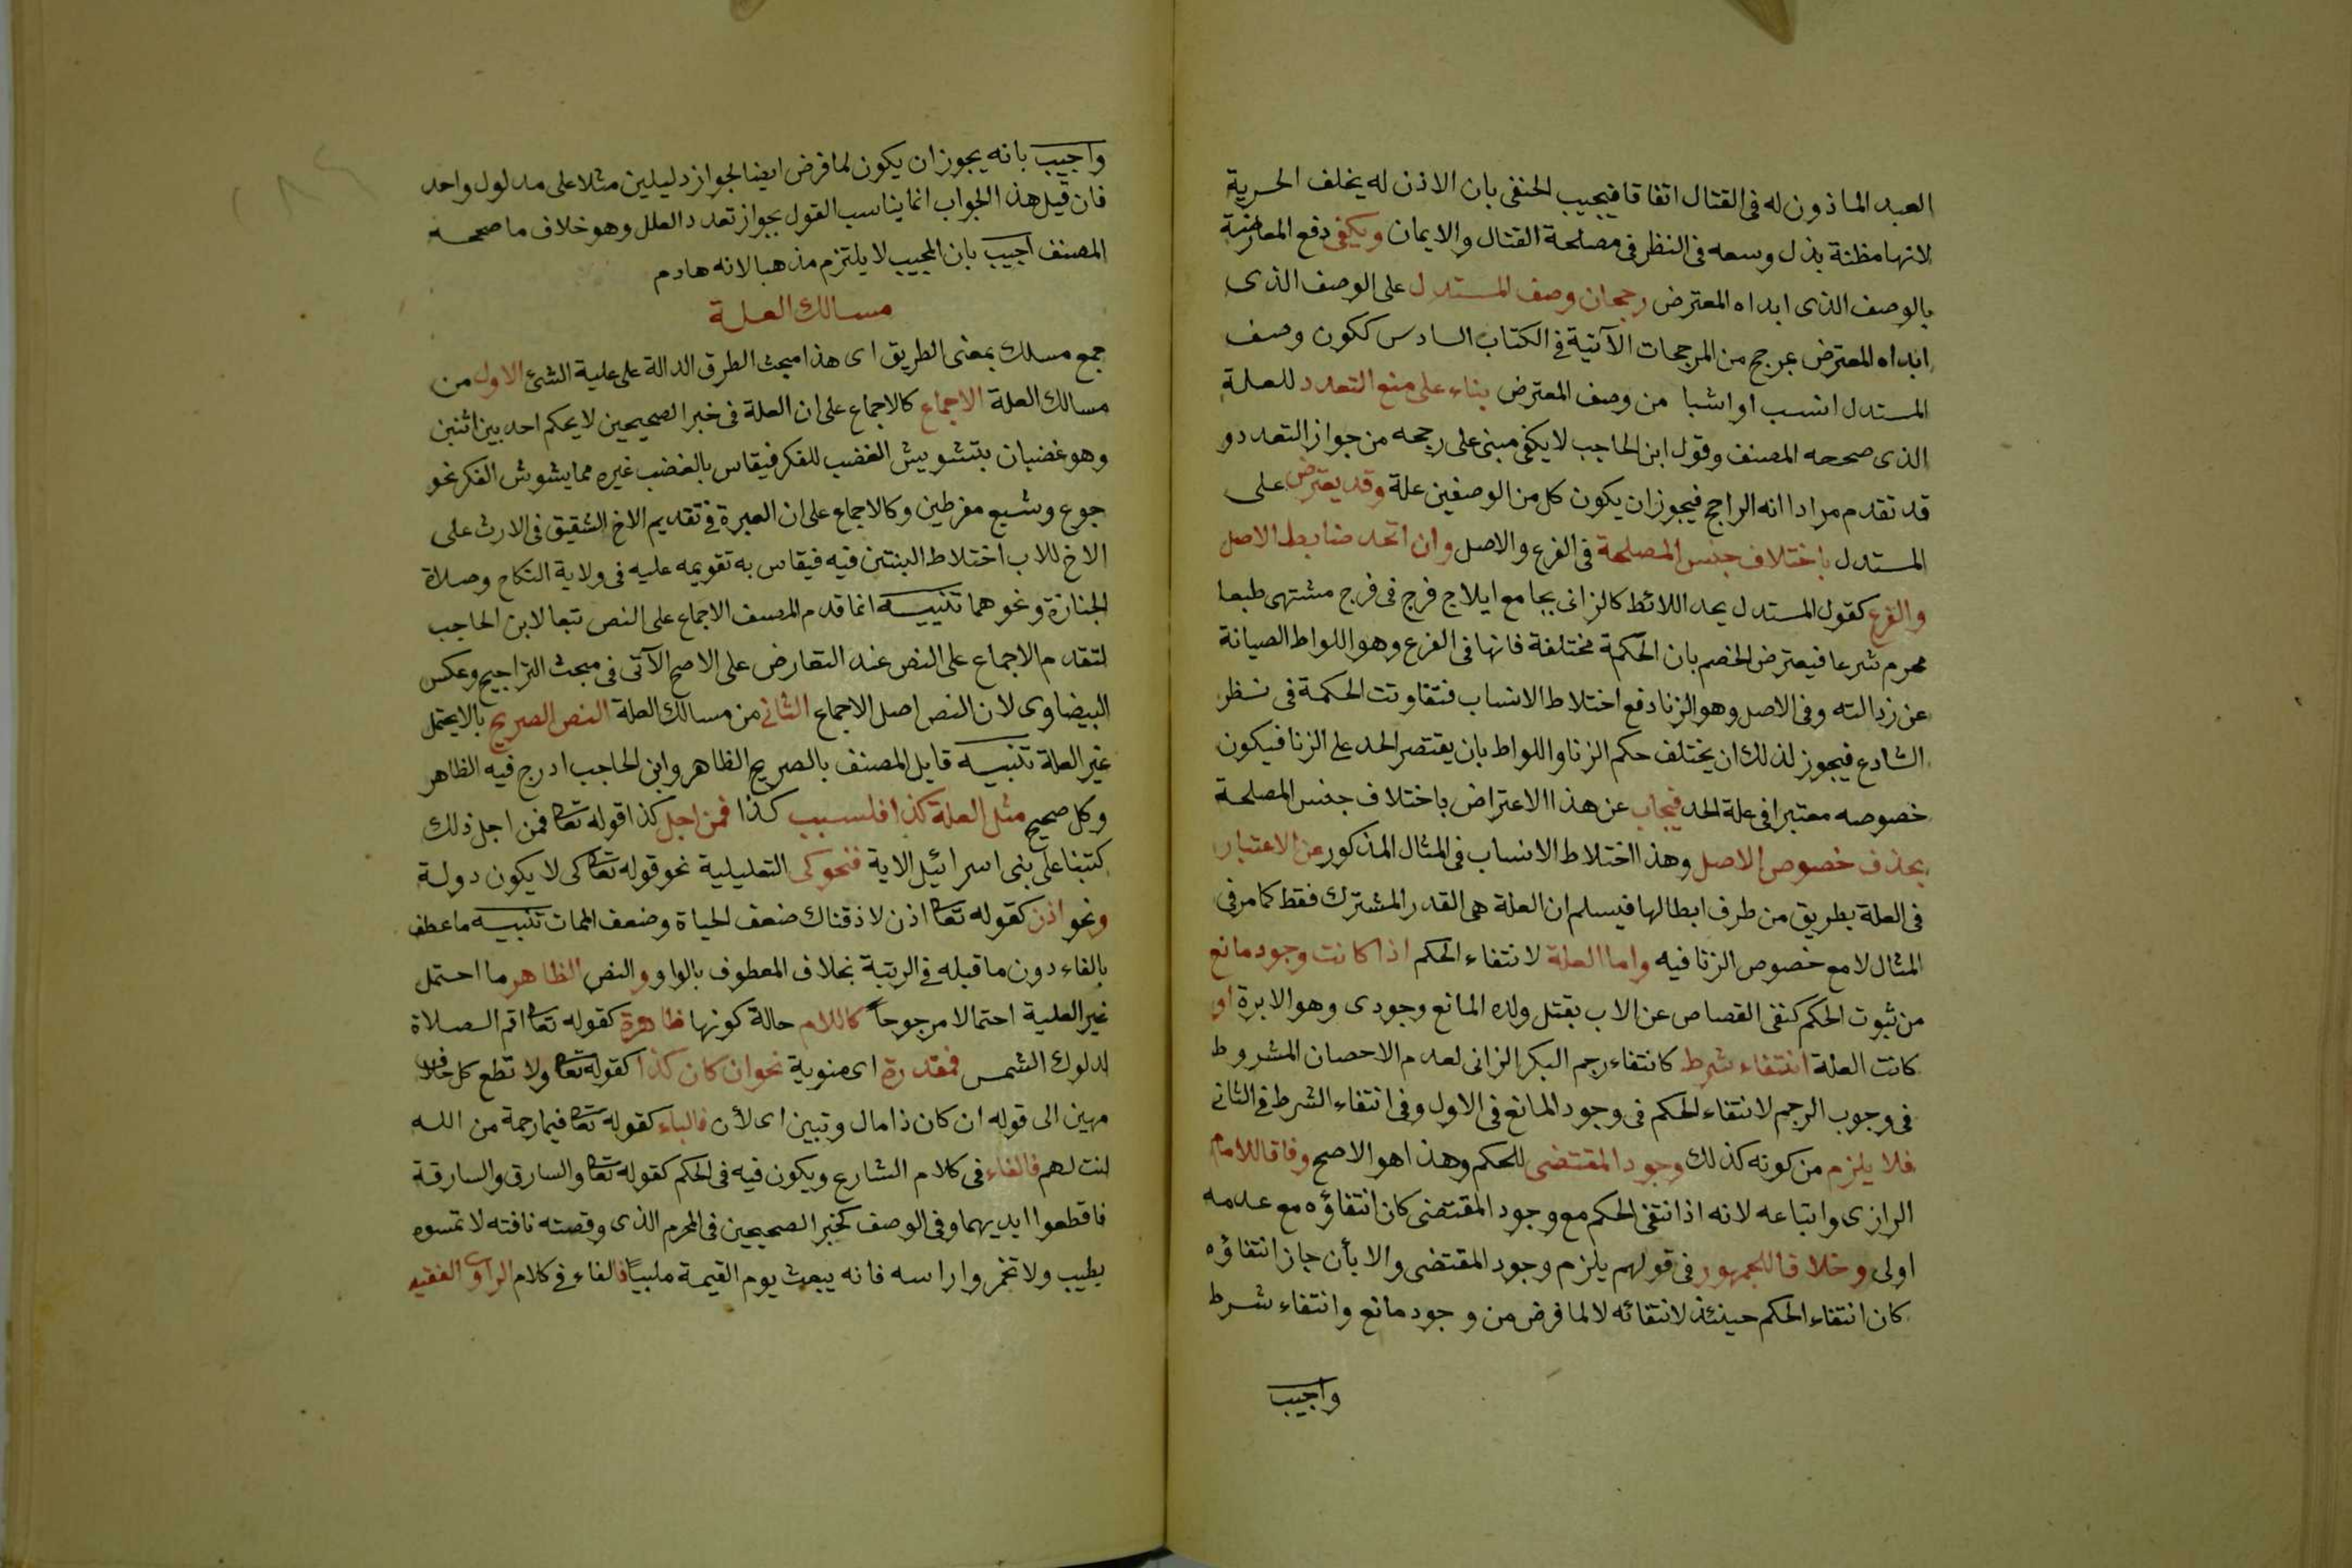 العبد الماذون له فى القتال اتفاقا فيجيب الحنفى بان الاذن له يخلف الحرية
لانها مظنة بذل وسعه فى النظر فى مصلحة القتال والايمان ويكفى دفع المعارضة
بالوصف الذى ابداه المعترض رجحان وصف المستدل على الوصف الذى
ابداه المعترض بمرجح من المرجحات الآتية فى الكتاب السادس ككون وصف
المستدل انسب او اشبا من وصف المعترض بناء على منع التعدد للعلة
الذى صححه المصنف وقول ابن الحاجب لا يكفى مبنى على رجحه من جواز التعدد و
قد تقدم مرادا انه الراجح فيجوز ان يكون كل من الوصفين علة وقد يعترض على
المستدل باختلاف جنس المصلحة فى الفرع والاصل وان اتحد ضابط الاصل
والفرع كقول المستدل يحد اللائط كالزانى بجامع ايلاج فرج فى فرج مشتهى طبعا
محرم شرعا فيعترض الخصم بان الحكمة مختلفة فانها فى الفرع وهو اللواط الصيانة
عن رذالته وفى الاصل وهو الزنا دفع اختلاط الانساب فتفاوتت الحكمة فى نظر
الشارع فيجوز لذلك ان يختلف حكم الزنا واللواط بان يقتصر الحد على الزنا فيكون
خصوصه معتبرا فى علة الحد فيجاب عن هذا الاعتراض باختلاف جنس المصلحة
بحذف خصوص الاصل وهذا اختلاط الانساب فى المثال المذكور عن الاعتبار
فى العلة بطريق من طرف ابطالها فيسلم ان العلة هى القدر المشترك فقط كما مر فى
المثال لا مع خصوص الزنا فيه واما العلة لانتفاء الحكم اذا كانت وجود مانع
من ثبوت الحكم كنفى القصاص عن الاب بقتل ولده المانع وجودى وهو الابرة او
كانت العلة انتفاء شرط كانتفاء رجم البكر الزانى لعدم الاحصان المشروط
فى وجوب الرجم لانتفاء الحكم فى وجود المانع فى الاول وفى انتفاء الشرط فى الثانى
فلا يلزم من كونه كذلك وجود المقتضى للحكم وهذا هو الاصح وفاقا للامام
الرازى واتباعه لانه اذا انتفى الحكم مع وجود المقتضى كان انتفاؤه مع عدمه
اولى وخلافا للجمهور فى قولهم يلزم وجود المقتضى والا بأن جاز انتفاؤه
كان انتفاء الحكم حينئذ لانتفائه لا لما فرض من وجود مانع وانتفاء شرط
واجيب
واجيب بانه يجوز ان يكون لما فرض ايضا لجواز دليلين مثلا على مدلول واحد
فان قيل هذا الجواب انما يناسب القول بجواز تعدد العلل وهو خلاف ما صححه
المصنف اجيب بان المجيب لا يلتزم مذهبا لانه هادم
مسالك العلة
جمع مسلك بمعنى الطريق اى هذا مبحث الطرق الدالة على علية الشئ الاول من
مسالك العلة الاجماع كالاجماع على ان العلة فى خبر الصحيحين لا يحكم احد بين اثنين
وهو غضبان بتشويش الغضب للفكر فيقاس بالغضب غيره مما يشوش الفكر نحو
جوع وشبع مفرطين وكالاجماع على ان العبرة فى تقديم الاخ الشقيق فى الارث على
الاخ للاب اختلاط البنتين فيه فيقاس به تقويمه عليه فى ولاية النكاح وصلاة
الجنازة ونحوهما تنبيه انما قدم المصنف الاجماع على النص تبعا لابن الحاجب
لتقدم الاجماع على النص عند التعارض على الاصح الآتى فى مبحث التراجيح وعكس
البيضاوى لان النص اصل الاجماع الثانى من مسالك العلة النص الصريح بالا يحتمل
غير العلة تنبيه قابل المصنف بالصريح الظاهر وابن الحاجب ادرج فيه الظاهر
وكل صحيح مثل العلة كذا فلسبب كذا فمن اجل كذا قوله تعا فمن اجل ذلك
كتبنا على بنى اسرائيل الاية فنحو كى التعليلية نحو قوله تعا كى لا يكون دولة
ونحو اذن كقوله تعا اذن لاذقناك ضعف الحياة وضعف الممات تنبيه ما عطف
بالفاء دون ما قبله فى الرتبة بخلاف المعطوف بالواو والنص الظاهر ما احتمل
غير العلية احتمالا مرجوحاً كاللام حالة كونها ظاهرة كقوله تعا اقم الصلاة
لدلوك الشمس فمقدرة اى منوية نحو ان كان كذا كقوله تعا ولا تطع كل حلاف
مهين الى قوله ان كان ذا مال وتبين اى لأن فالباء كقوله تعا فبما رحمة من الله
لنت لهم فالفاء فى كلام الشارع ويكون فيه فى الحكم كقوله تعا والسارق والسارقة
فاقطعوا ايديهما وفى الوصف كخبر الصحيحين فى المحرم الذى وقصته نافته لا تمسوه
بطيب ولا تخمروا راسه فانه يبعث يوم القيمة ملبياً فالفاء فى كلام الراوى الفقيه